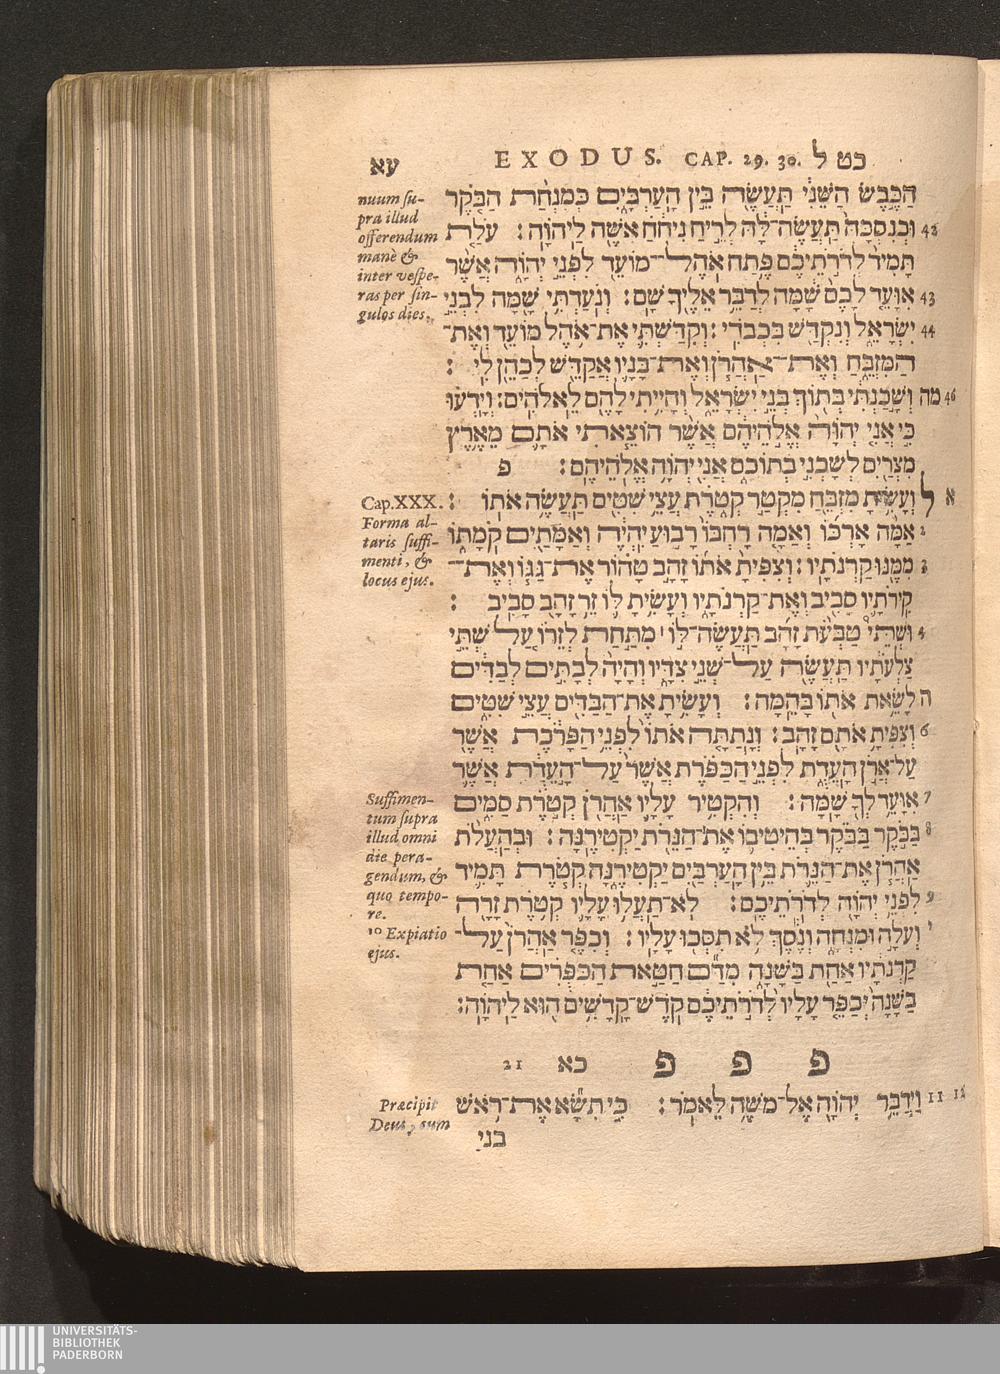 עא EXODUS. CAP. 29. 30. כט ל
הַכֶּבֶשׂ הַשֵּׁנִי תַּעֲשֶׂה בֵּין הָעַרְבָּיִם כְּמִנְחַת הַבֹּקֶר
42 וּכְנִסְכָּהּ תַּעֲשֶׂה־לָּהּ לְרֵיחַ נִיחֹחַ אִשֶּׁה לַיהוָֹה׃ עֹלַת
תָּמִיד לְדֹרֹתֵיכֶם פֶּתַח אֹהֶל־מוֹעֵד לִפְנֵי יְהוָֹה אֲשֶׁר
43 אִוָּעֵד לָכֶם שָׁמָּה לְדַבֵּר אֵלֶיךָ שָׁם׃ וְנֹעַדְתִּי שָׁמָּה לִבְנֵי
44 יִשְׂרָאֵל וְנִקְדַּשׁ בִּכְבֹדִי׃ וְקִדַּשְׁתִּי אֶת־אֹהֶל מוֹעֵד וְאֶת־
הַמִּזְבֵּחַ וְאֶת־אַהֲרֹן וְאֶת־בָּנָיו אֲקַדֵּשׁ לְכַהֵן לִי׃
מה 46 וְשָׁכַנְתִּי בְּתוֹךְ בְּנֵי יִשְׂרָאֵל וְהָיִיתִי לָהֶם לֵאלֹהִים׃ וְיָדְעוּ
כִּי אֲנִי יְהוָֹה אֱלֹהֵיהֶם אֲשֶׁר הוֹצֵאתִי אֹתָם מֵאֶרֶץ
מִצְרַיִם לְשָׁכְנִי בְתוֹכָם אֲנִי יְהוָֹה אֱלֹהֵיהֶם׃ פ
א ל וְעָשִׂיתָ מִזְבֵּחַ מִקְטַר קְטֹרֶת עֲצֵי שִׁטִּים תַּעֲשֶׂה אֹתוֹ׃
2 אַמָּה אָרְכּוֹ וְאַמָּה רָחְבּוֹ רָבוּעַ יִהְיֶה וְאַמָּתַיִם קֹמָתוֹ
3 מִמֶּנּוּ קַרְנֹתָיו׃ וְצִפִּיתָ אֹתוֹ זָהָב טָהוֹר אֶת־גַּגּוֹ וְאֶת־
קִירֹתָיו סָבִיב וְאֶת־קַרְנֹתָיו וְעָשִׂיתָ לּוֹ זֵר זָהָב סָבִיב׃
4 וּשְׁתֵּי טַבְּעֹת זָהָב תַּעֲשֶׂה־לּוֹ מִתַּחַת לְזֵרוֹ עַל שְׁתֵּי
צַלְעֹתָיו תַּעֲשֶׂה עַל־שְׁנֵי צִדָּיו וְהָיָה לְבָתִּים לְבַדִּים
ה לָשֵׂאת אֹתוֹ בָּהֵמָּה׃ וְעָשִׂיתָ אֶת־הַבַּדִּים עֲצֵי שִׁטִּים
6 וְצִפִּיתָ אֹתָם זָהָב׃ וְנָתַתָּה אֹתוֹ לִפְנֵי הַפָּרֹכֶת אֲשֶׁר
עַל־אֲרֹן הָעֵדֻת לִפְנֵי הַכַּפֹּרֶת אֲשֶׁר עַל־הָעֵדֻת אֲשֶׁר
7 אִוָּעֵד לְךָ שָׁמָּה׃ וְהִקְטִיר עָלָיו אַהֲרֹן קְטֹרֶת סַמִּים
8 בַּבֹּקֶר בַּבֹּקֶר בְּהֵיטִיבוֹ אֶת־הַנֵּרֹת יַקְטִירֶנָּה׃ וּבְהַעֲלֹת
אַהֲרֹן אֶת־הַנֵּרֹת בֵּין הָעַרְבַּיִם יַקְטִירֶנָּה קְטֹרֶת תָּמִיד
9 לִפְנֵי יְהוָֹה לְדֹרֹתֵיכֶם׃ לֹא־תַעֲלוּ עָלָיו קְטֹרֶת זָרָה
י וְעֹלָה וּמִנְחָה וְנֵסֶךְ לֹא תִסְּכוּ עָלָיו׃ וְכִפֶּר אַהֲרֹן עַל־
קַרְנֹתָיו אַחַת בַּשָּׁנָה מִדַּם חַטַּאת הַכִּפֻּרִים אַחַת
בַּשָּׁנָה יְכַפֵּר עָלָיו לְדֹרֹתֵיכֶם קֹדֶשׁ־קָדָשִׁים הוּא לַיהוָֹה׃
פ פ פ כא 21
11 12 וַיְדַבֵּר יְהוָֹה אֶל־מֹשֶׁה לֵּאמֹר׃ כִּי תִשָּׂא אֶת־רֹאשׁ
בני
nuum su-
pra illud
offerendum
manè &
inter vespe-
ras per sin-
gulos dies.
Cap. XXX.
Forma al-
taris suffi-
menti, &
locus ejus.
Suffimen-
tum supra
illud omni
die pera-
gendum, &
quo tempo-
re.
10 Expiatio
ejus.
Præcipit
Deus, sum
UNIVERSITÄTS-
BIBLIOTHEK
PADERBORN